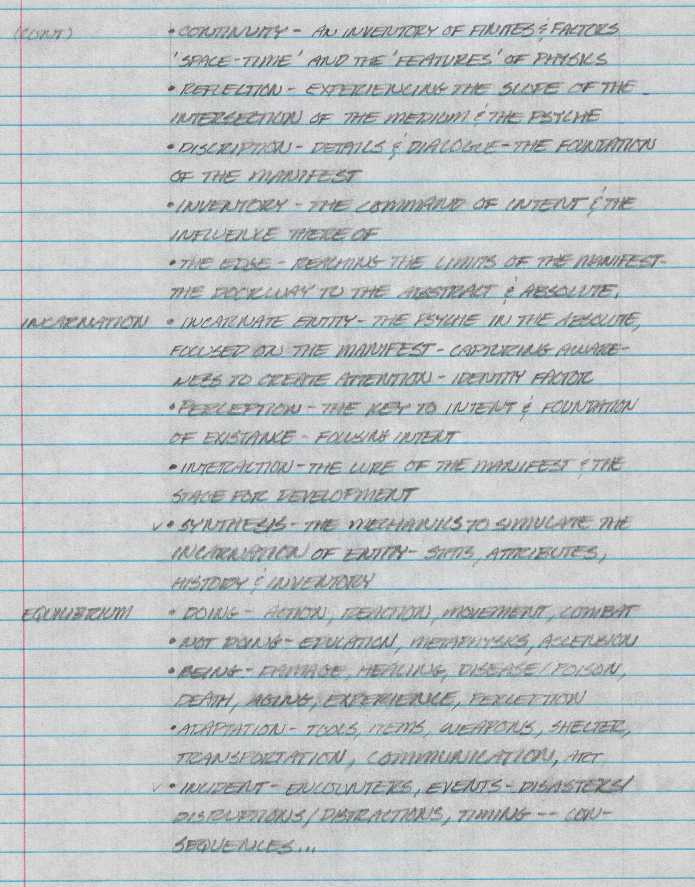 (CONT) • CONTINUITY - AN INVENTORY OF FINITES & FACTORS
'SPACE-TIME' AND THE 'FEATURES' OF PHYSICS
• REFLECTION - EXPERIENCING THE SLOPE OF THE
INTERSECTION OF THE MEDIUM & THE PSYCHE
• DISCRIPTION - DETAILS & DIALOGUE - THE FOUNDATION
OF THE MANIFEST
• INVENTORY - THE COMMAND OF INTENT & THE
INFLUENCE THERE OF
• THE EDGE - REACHING THE LIMITS OF THE MANIFEST -
THE DOORWAY TO THE ABSTRACT & ABSOLUTE.
INCARNATION • INCARNATE ENTITY - THE PSYCHE IN THE ABSOLUTE,
FOCUSED ON THE MANIFEST - CAPTURING AWARE-
NESS TO CREATE ATTENTION - IDENTITY FACTOR
• PERCEPTION - THE KEY TO INTENT & FOUNDATION
OF EXISTANCE - FOCUSING INTENT
• INTERACTION - THE LURE OF THE MANIFEST & THE
STAGE FOR DEVELOPMENT
✓ • SYNTHESIS - THE MECHANICS TO SIMULATE THE
INCARNATION OF ENTITY - STATS, ATTRIBUTES,
HISTORY & INVENTORY
EQUILIBRIUM • DOING - ACTION, REACTION, MOVEMENT, COMBAT
• NOT DOING - EDUCATION, METAPHYSICS, ASCENSION
• BEING - DAMAGE, HEALING, DISEASE / POISON,
DEATH, AGING, EXPERIENCE, PERCEPTION
• ADAPTATION - TOOLS, ITEMS, WEAPONS, SHELTER,
TRANSPORTATION, COMMUNICATION, ART
✓ • INCIDENT - ENCOUNTERS, EVENTS - DISASTERS /
DISRUPTIONS / DISTRACTIONS, TIMING -- CON-
SEQUENCES...